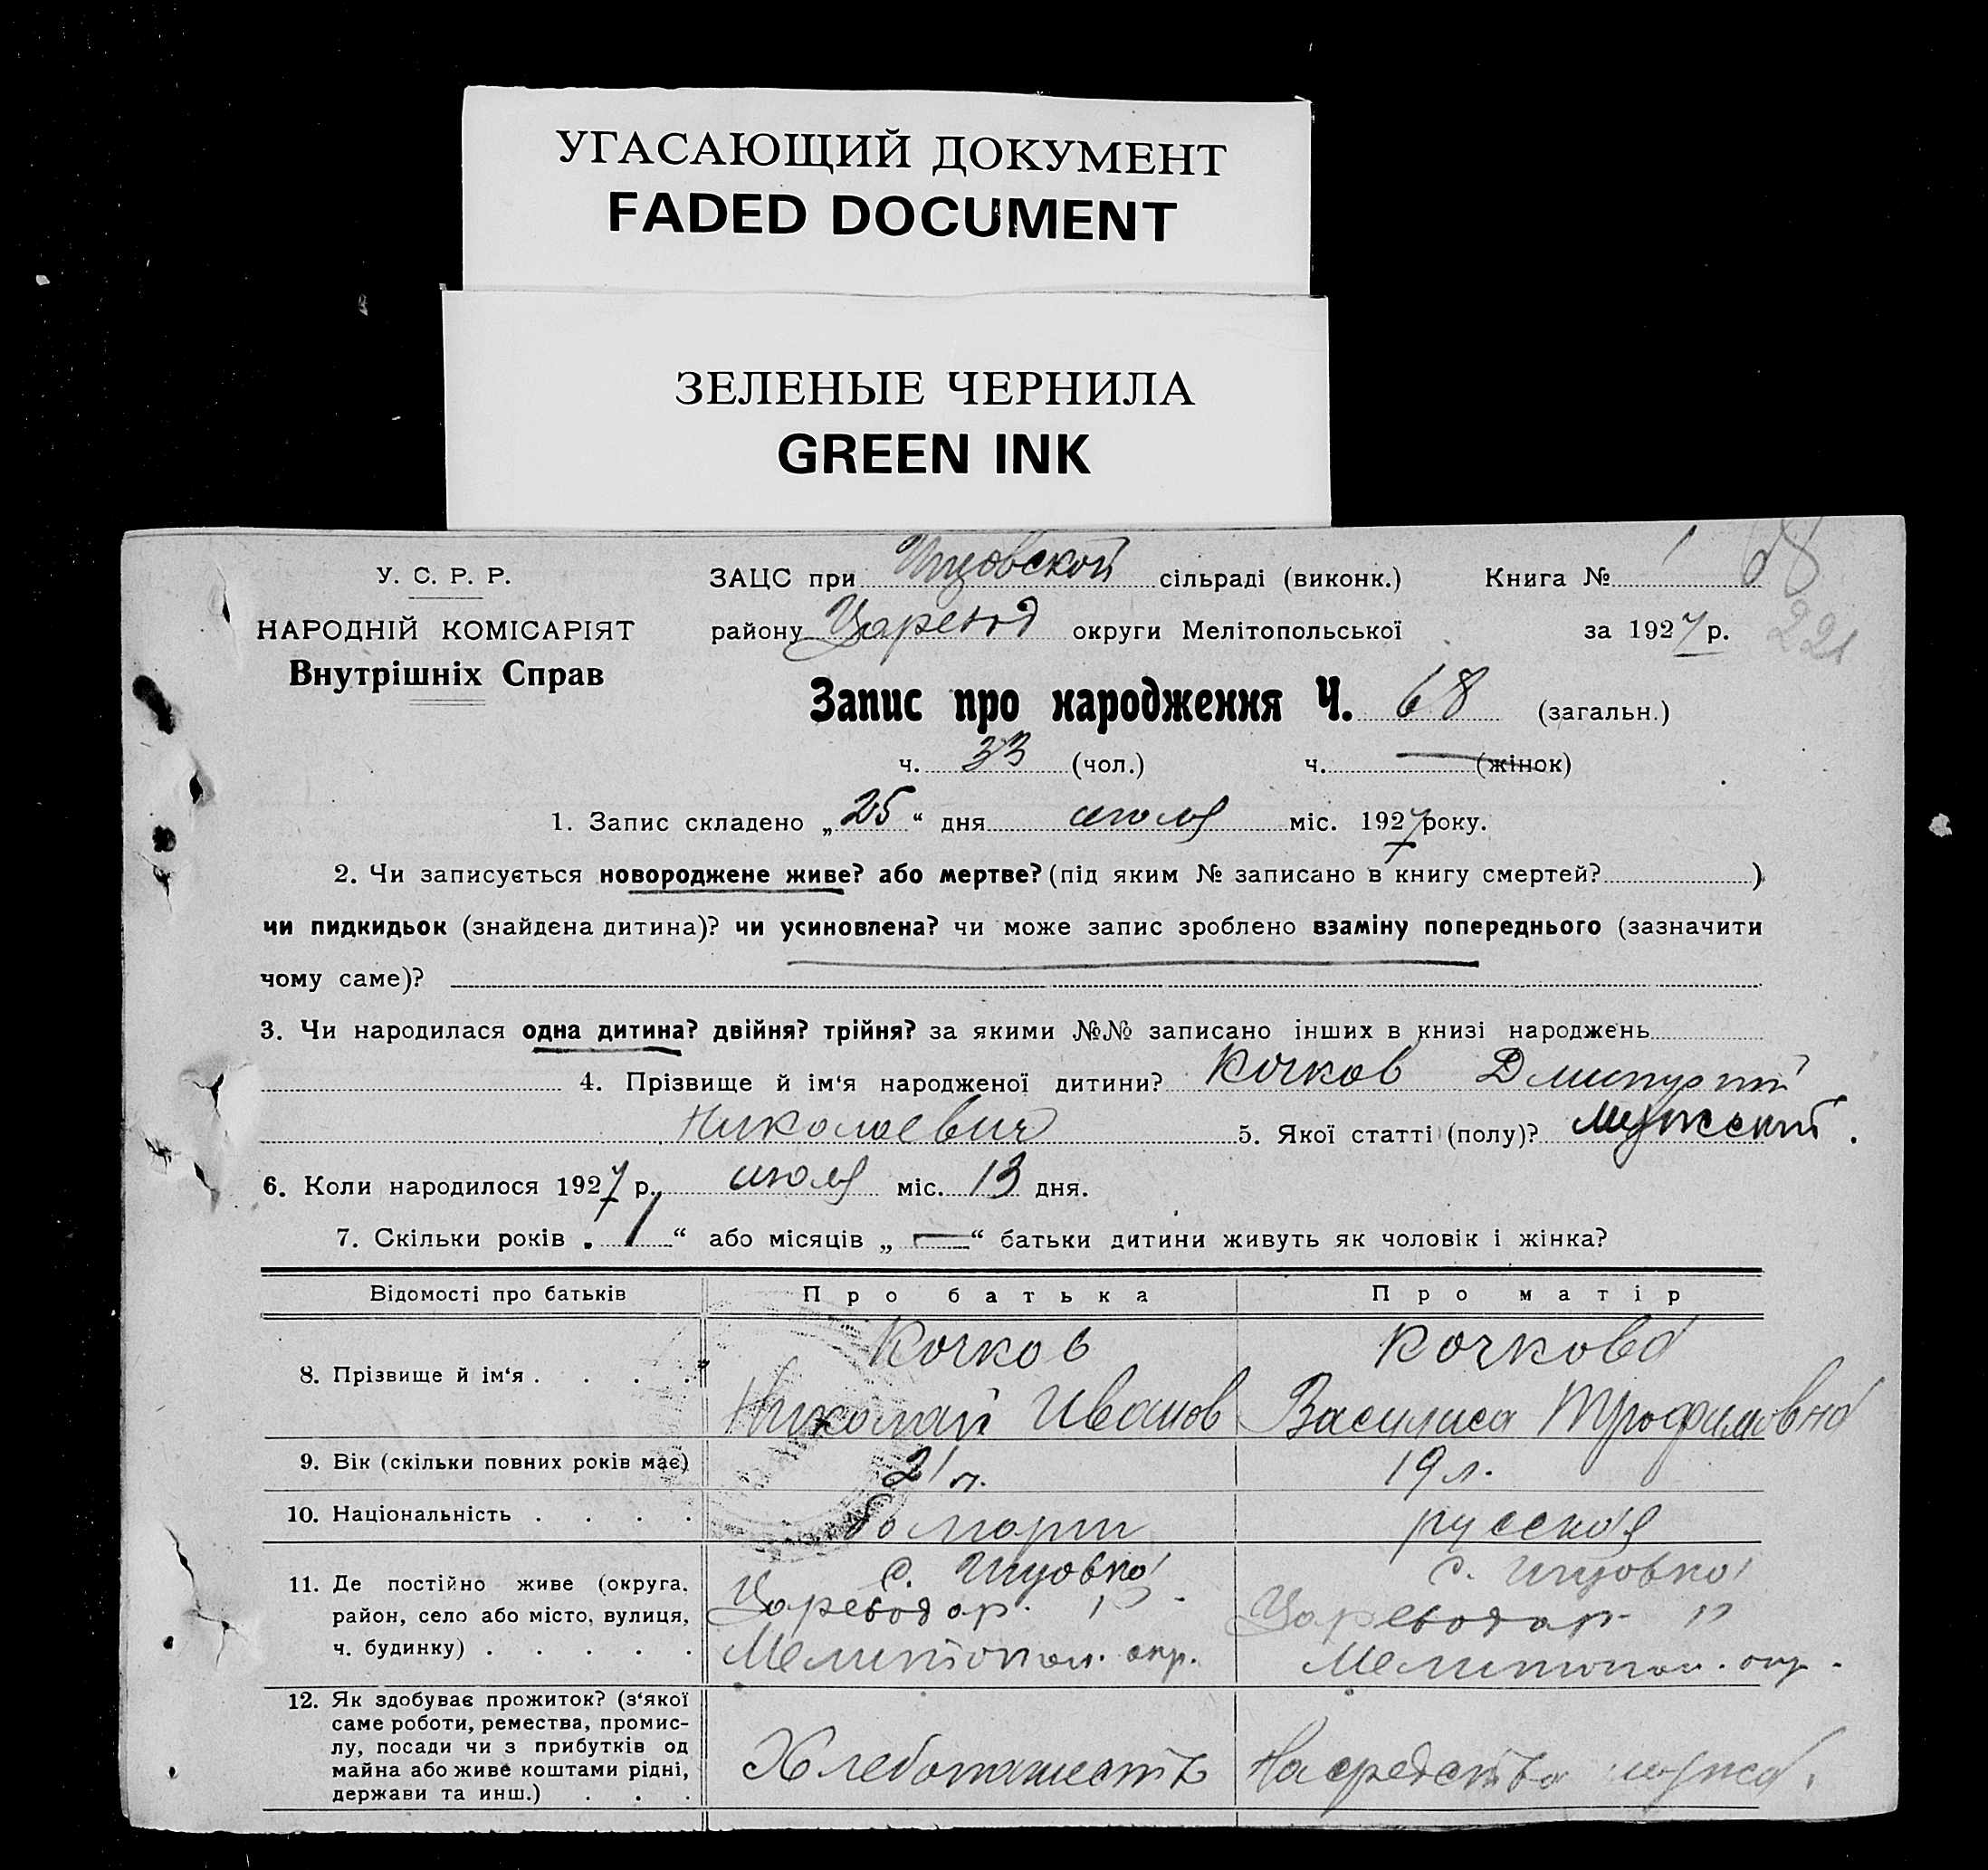 УГАСАЮЩИЙ ДОКУМЕНТ
FADED DOCUMENT
ЗЕЛЕНЫЕ ЧЕРНИЛА
GREEN INK
У. С. Р. Р.
НАРОДНІЙ КОМІСАРІЯТ
Внутрішніх Справ
ЗАЦС при сільраді (виконк.) Книга № 1 68
району округи Мелітопольської за 1927 р. 221
Запис про народження Ч. 68 (загальн.)
ч. 33 (чол.) ч. — (жінок)
1. Запис складено „25“ дня июля міс. 1927 року.
2. Чи записується новороджене живе? або мертве? (під яким № записано в книгу смертей? )
чи пидкидьок (знайдена дитина)? чи усиновлена? чи може запис зроблено взаміну попереднього (зазначити
чому саме)?
3. Чи народилася одна дитина? двійня? трійня? за якими №№ записано інших в книзі народжень
4. Прізвище й ім‘я народженої дитини? Кочков Дмитрий
Николаевич 5. Якої статті (полу)? Мужский.
6. Коли народилося 1927 р. июля міс. 13 дня.
7. Скільки років „1“ або місяців „—“ батьки дитини живуть як чоловік і жінка?
Відомості про батьків Про батька Про матір
8. Прізвище й ім‘я . . . . Кочков Николай Иванов Кочкова Василиса Трофимовна
9. Вік (скільки повних років має) 21 л. 19 л.
10. Національність . . . . болгарин русская
11. Де постійно живе (округа, район, село або місто, вулиця, ч. будинку) . . . . . с. Цареводар. р. Мелитопол. окр. с. Цареводар р Мелитопол. окр.
12. Як здобуває прожиток? (з‘якої саме роботи, ремества, промислу, посади чи з прибутків од майна або живе коштами рідні, держави та инш.) . . . Хлебопашеств На средства мужа.